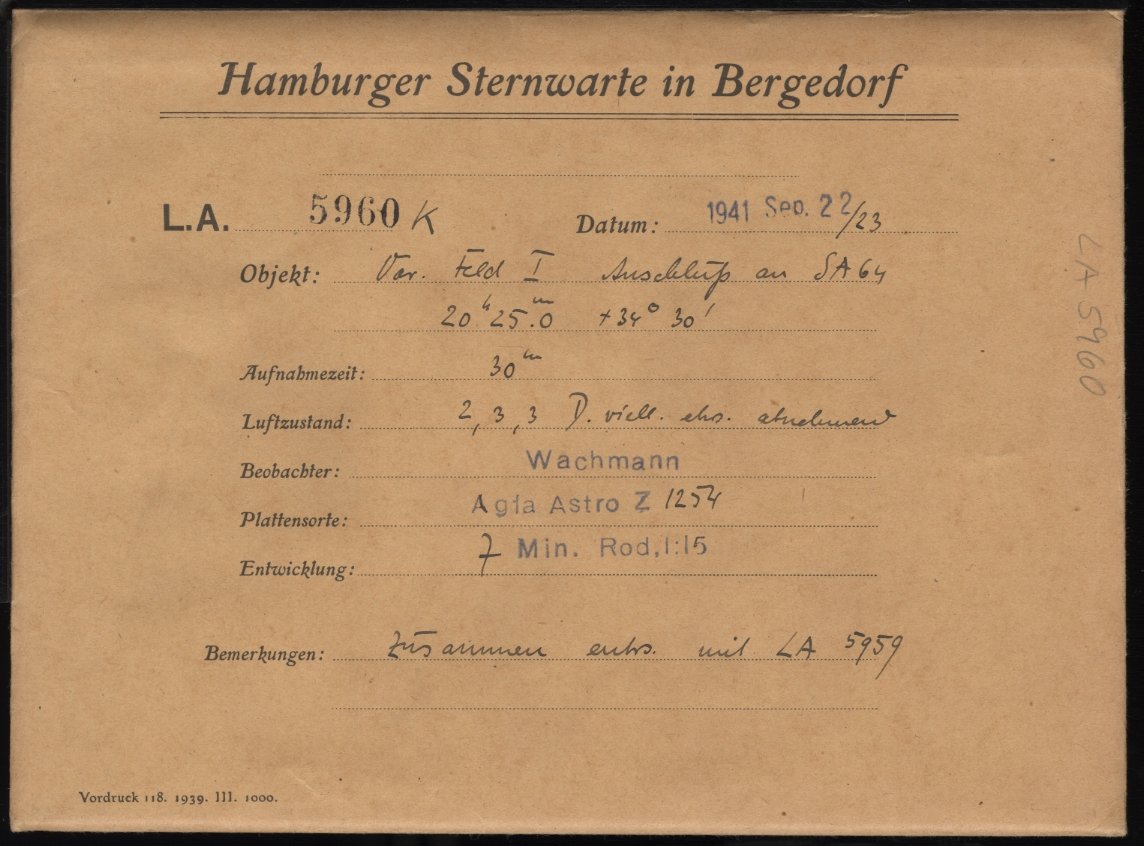 Hamburger Sternwarte in Bergedorf
L.A. 5960 K Datum: 1941 Sep. 22/23
Objekt: Var. Feld I Anschluß an SA 64
20ʰ 25ᵐ.0 +34° 30'
Aufnahmezeit: 30ᵐ
Luftzustand: 2, 3, 3 D. viell. etws. abnehmend
Beobachter: Wachmann
Plattensorte: Agfa Astro Z 1254
Entwicklung: 7 Min. Rod, 1:15
Bemerkungen: Zusammen entw. mit LA 5959
Vordruck 118. 1939. III. 1000.
LA 5960